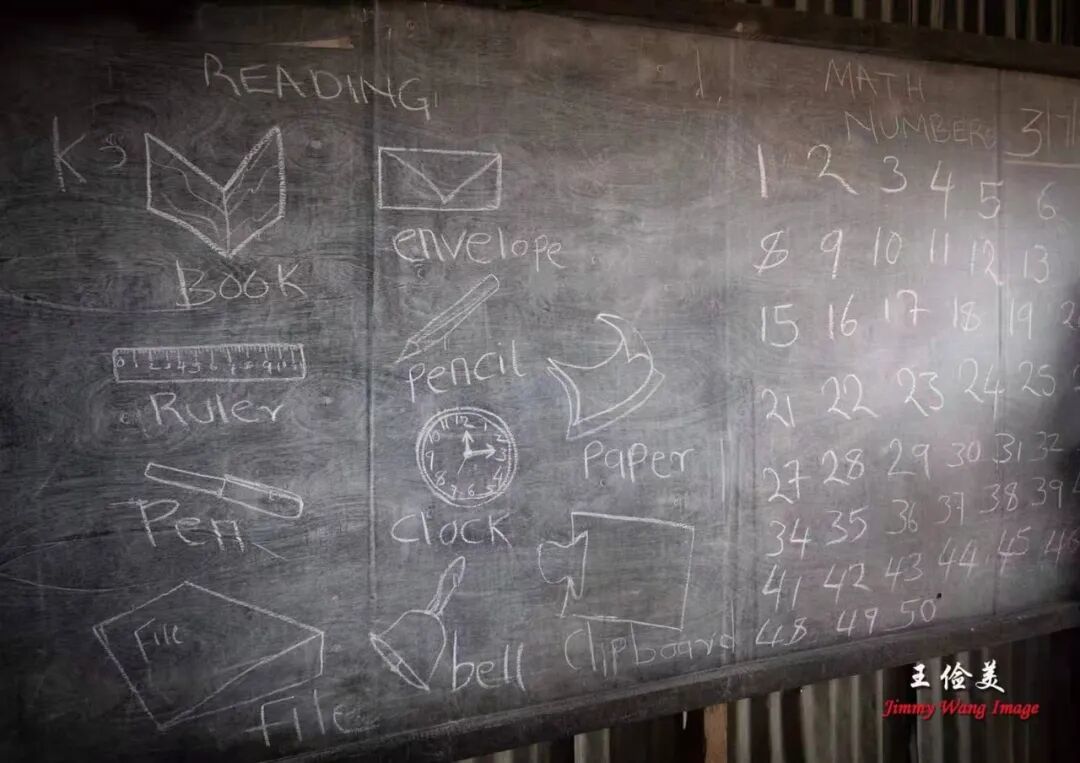 READING
K
BOOK
envelope
0 1 2 3 4 5 6 7 8 9 10 11
Ruler
pencil
Paper
12 1 2 3 4 5 6 7 8 9 10 11
Pen
Clock
File
File
bell
Clipboard
1,
MATH
NUMBERS
1 2 3 4 5 6
8 9 10 11 12 13
15 16 17 18 19
21 22 23 24 25
27 28 29 30 31 32
34 35 36 37 38 39
41 42 43 44 45 46
48 49 50
王俭美
Jimmy Wang Image